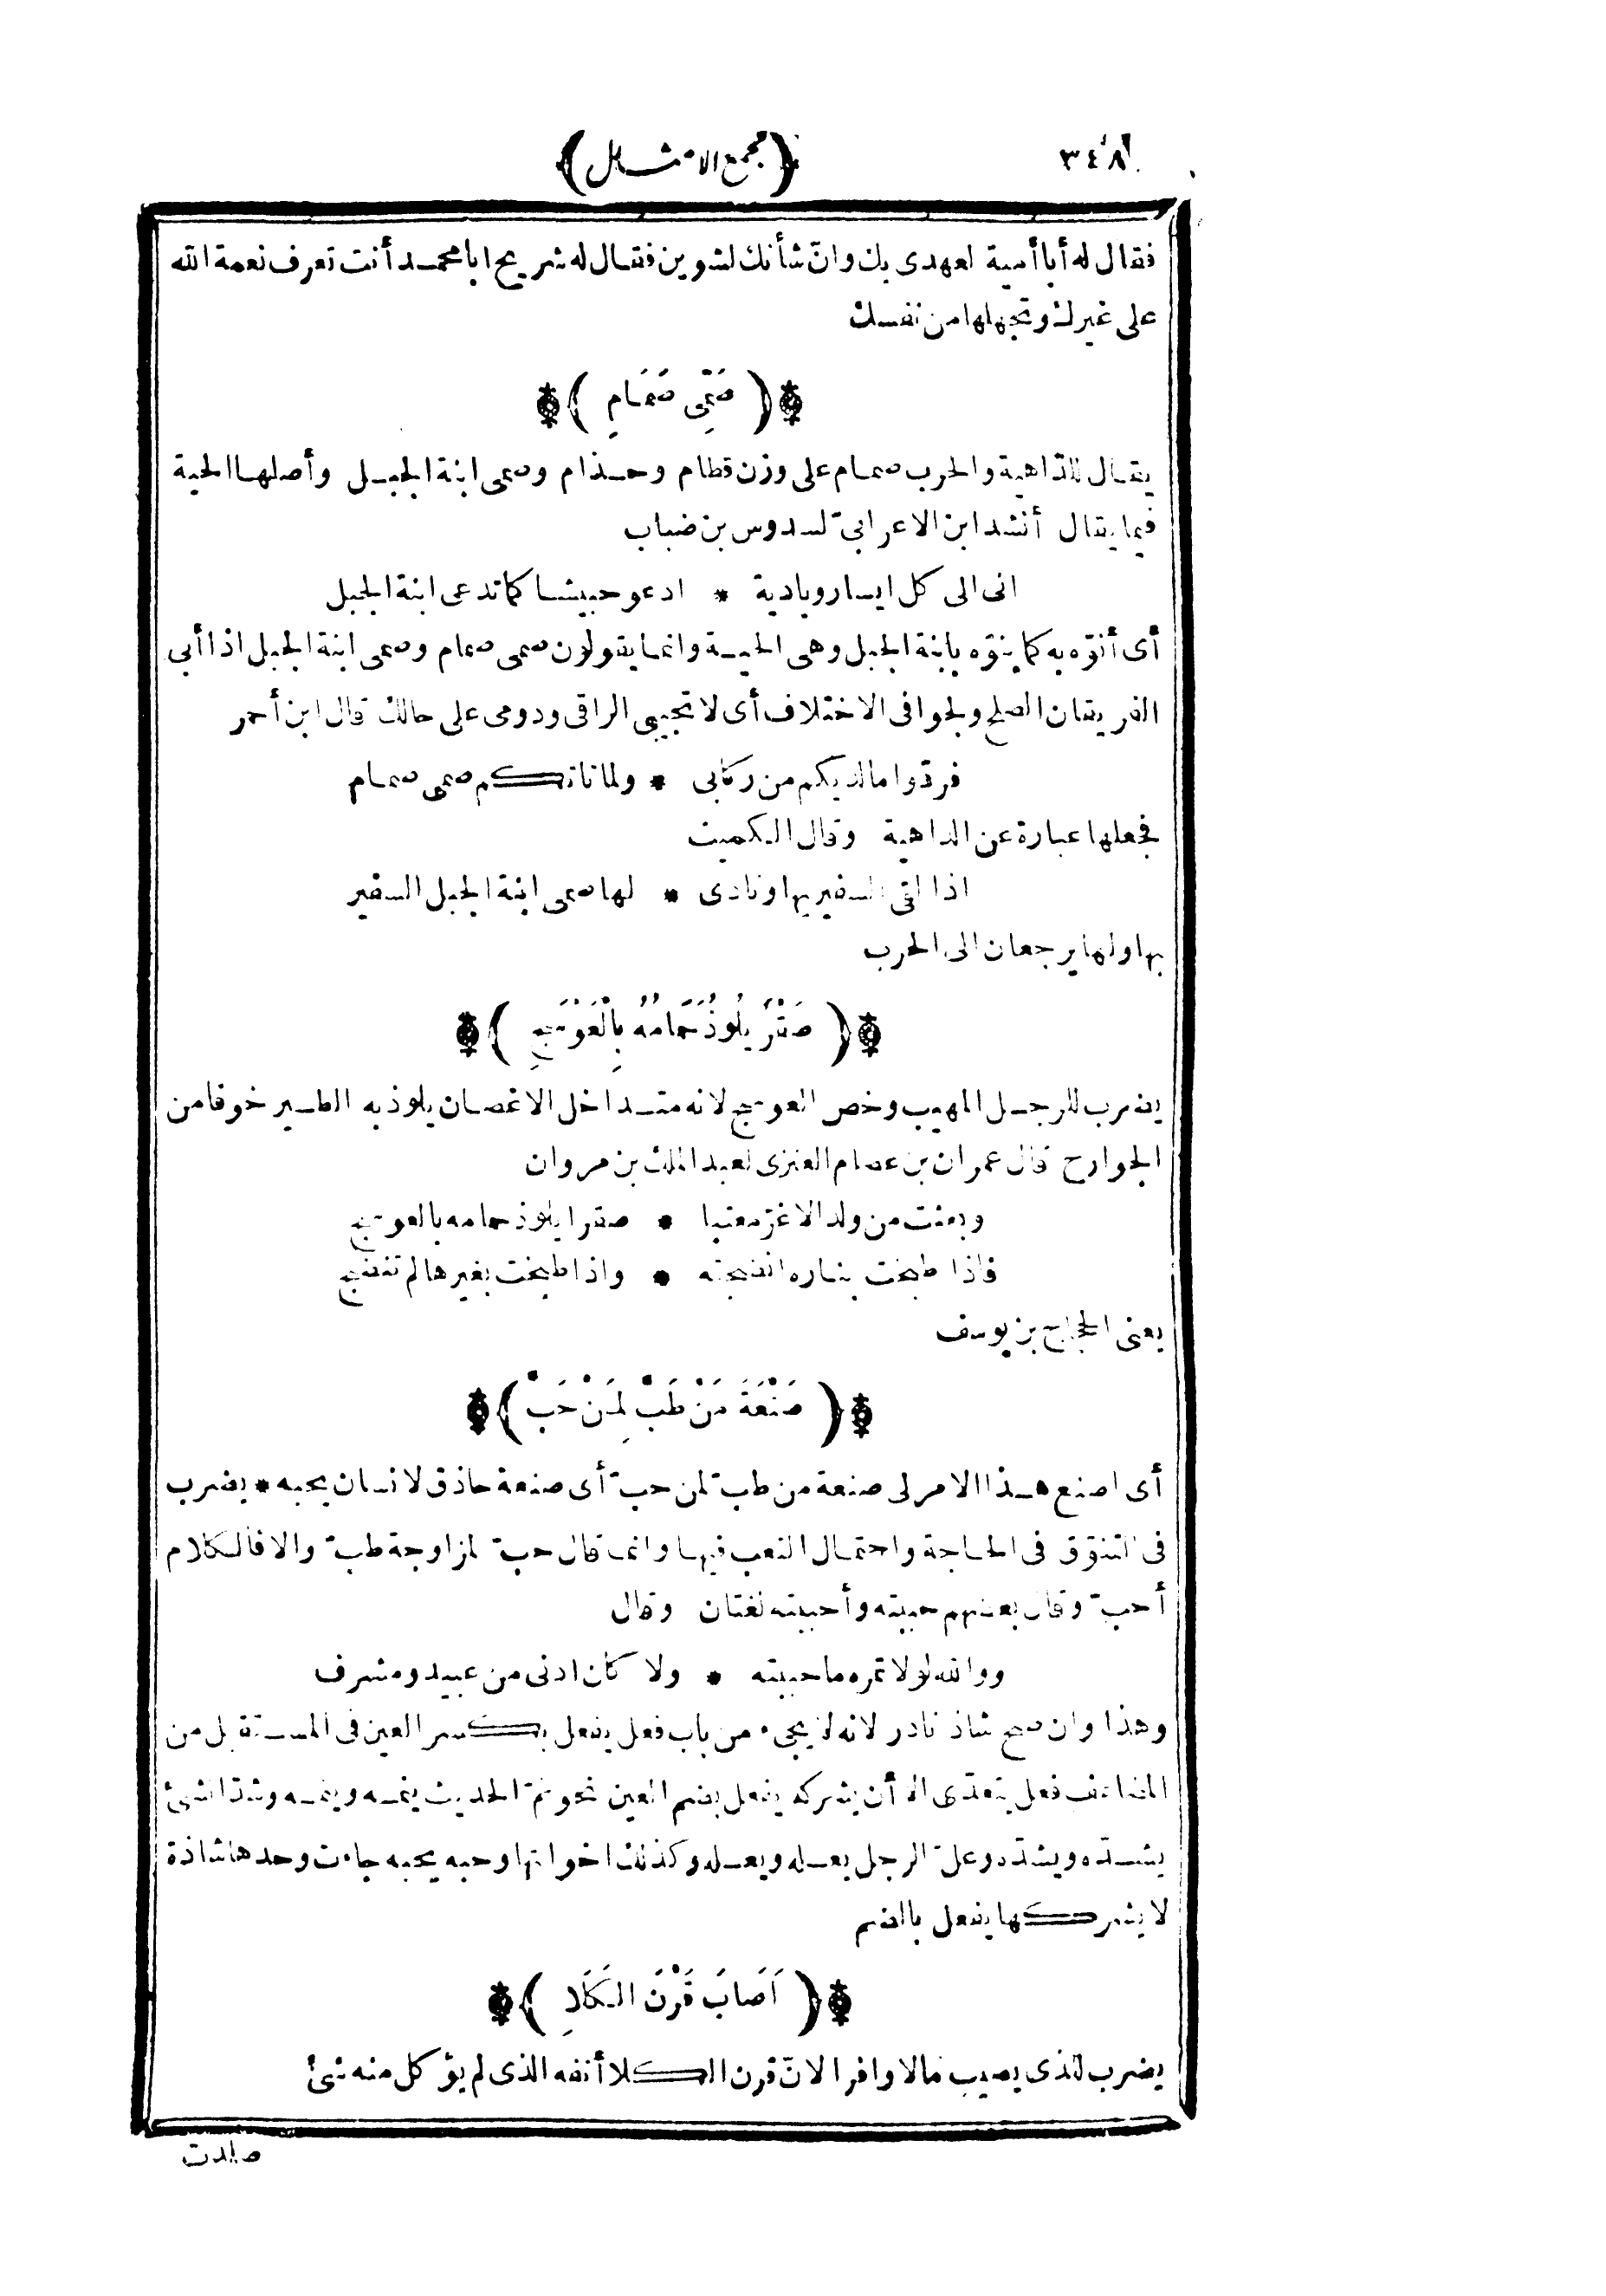 ٣٤٨
(مجمع الامثال)
فقال له أبا أمية لعهدى بك وانّ شأنك لشوين فقال له شريح ابا محمد أنت تعرف نعمة الله
على غيرك وتجهلها من نفسك
( صَمِّى صَمَامِ )
يقال للداهية والحرب صمام على وزن قطام وحذام وصمى ابنة الجبل وأصلها الحية
فيما يقال أنشد ابن الاعرابىّ لسدوس بن ضباب
انى الى كل ايسار وبادية * ادعو حبيشا كما تدعى ابنة الجبل
أى أنوّه به كما ينوّه بابنة الجبل وهى الحية وانما يقولون صمى صمام وصمى ابنة الجبل اذا أبى
الفريقان الصلح ولجوا فى الاختلاف أى لا تجيبى الراقى ودومى على حالك قال ابن أحمر
فردّوا ما لديكم من ركابى * ولما تاتكم صمى صمام
فجعلها عبارة عن الداهية وقال الكميت
اذا لقى السفير بها ونادى * لها صمى ابنة الجبل السفير
بها ولها يرجعان الى الحرب
( صَقْرٌ يَلُوذُ حَمَامُهُ بِالْعَوْسَجِ )
يضرب للرجل المهيب وخص العوسج لانه متداخل الاغصان يلوذ به الطير خوفا من
الجوارح قال عمران بن عصام العنزى لعبد الملك بن مروان
وبعثت من ولد الاغرّ معتبا * صقرا يلوذ حمامه بالعوسج
فاذا طبخت بناره انضجته * واذا طبخت بغيرها لم تنضج
يعنى الحجاج بن يوسف
( صَنْعَةَ مَنْ طَبَّ لِمَنْ حَبَّ )
أى اصنع هذا الامر لى صنعة من طبّ لمن حبّ أى صنعة حاذق لانسان يحبه * يضرب
فى التنوّق فى الحاجة واحتمال التعب فيها وانما قال حبّ لمزاوجة طبّ والا فالكلام
أحبّ وقال بعضهم حببته وأحببته لغتان وقال
ووالله لولا تمره ما حببته * ولا كان ادنى من عبيد ومشرف
وهذا وان صح شاذ نادر لانه لا يجىء من باب فعل يفعل بكسر العين فى المستقبل من
المضاعف فعل يتعدّى الا أن يشركه يفعل بضم العين نحو نمّ الحديث ينمه وينمه وشدّ الشئ
يشدّه ويشدّه وعلّ الرجل يعله ويعله وكذلك اخواتها وحبه يحبه جاءت وحدها شاذة
لا يشركها يفعل بالضم
( اَصَابَ قَرْنَ الكَلَاِ )
يضرب للذى يصيب مالا وافرا لانّ قرن الكلا أنفه الذى لم يؤكل منه شئ
صلدت